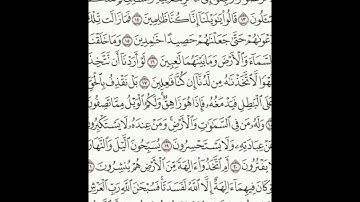 تُسْـَٔلُونَ ١٣ قَالُوا۟ يَٰوَيْلَنَآ إِنَّا كُنَّا ظَٰلِمِينَ ١٤ فَمَا زَالَت تِّلْكَ
دَعْوَىٰهُمْ حَتَّىٰ جَعَلْنَٰهُمْ حَصِيدًا خَٰمِدِينَ ١٥ وَمَا خَلَقْنَا
ٱلسَّمَآءَ وَٱلْأَرْضَ وَمَا بَيْنَهُمَا لَٰعِبِينَ ١٦ لَوْ أَرَدْنَآ أَن نَّتَّخِذَ
لَهْوًا لَّٱتَّخَذْنَٰهُ مِن لَّدُنَّآ إِن كُنَّا فَٰعِلِينَ ١٧ بَلْ نَقْذِفُ بِٱلْحَقِّ
عَلَى ٱلْبَٰطِلِ فَيَدْمَغُهُۥ فَإِذَا هُوَ زَاهِقٌ وَلَكُمُ ٱلْوَيْلُ مِمَّا تَصِفُونَ
١٨ وَلَهُۥ مَن فِى ٱلسَّمَٰوَٰتِ وَٱلْأَرْضِ وَمَنْ عِندَهُۥ لَا يَسْتَكْبِرُونَ
عَنْ عِبَادَتِهِۦ وَلَا يَسْتَحْسِرُونَ ١٩ يُسَبِّحُونَ ٱلَّيْلَ وَٱلنَّهَارَ
لَا يَفْتُرُونَ ٢٠ أَمِ ٱتَّخَذُوٓا۟ ءَالِهَةً مِّنَ ٱلْأَرْضِ هُمْ يُنشِرُونَ ٢١
لَوْ كَانَ فِيهِمَآ ءَالِهَةٌ إِلَّا ٱللَّهُ لَفَسَدَتَا فَسُبْحَٰنَ ٱللَّهِ رَبِّ ٱلْعَرْشِ